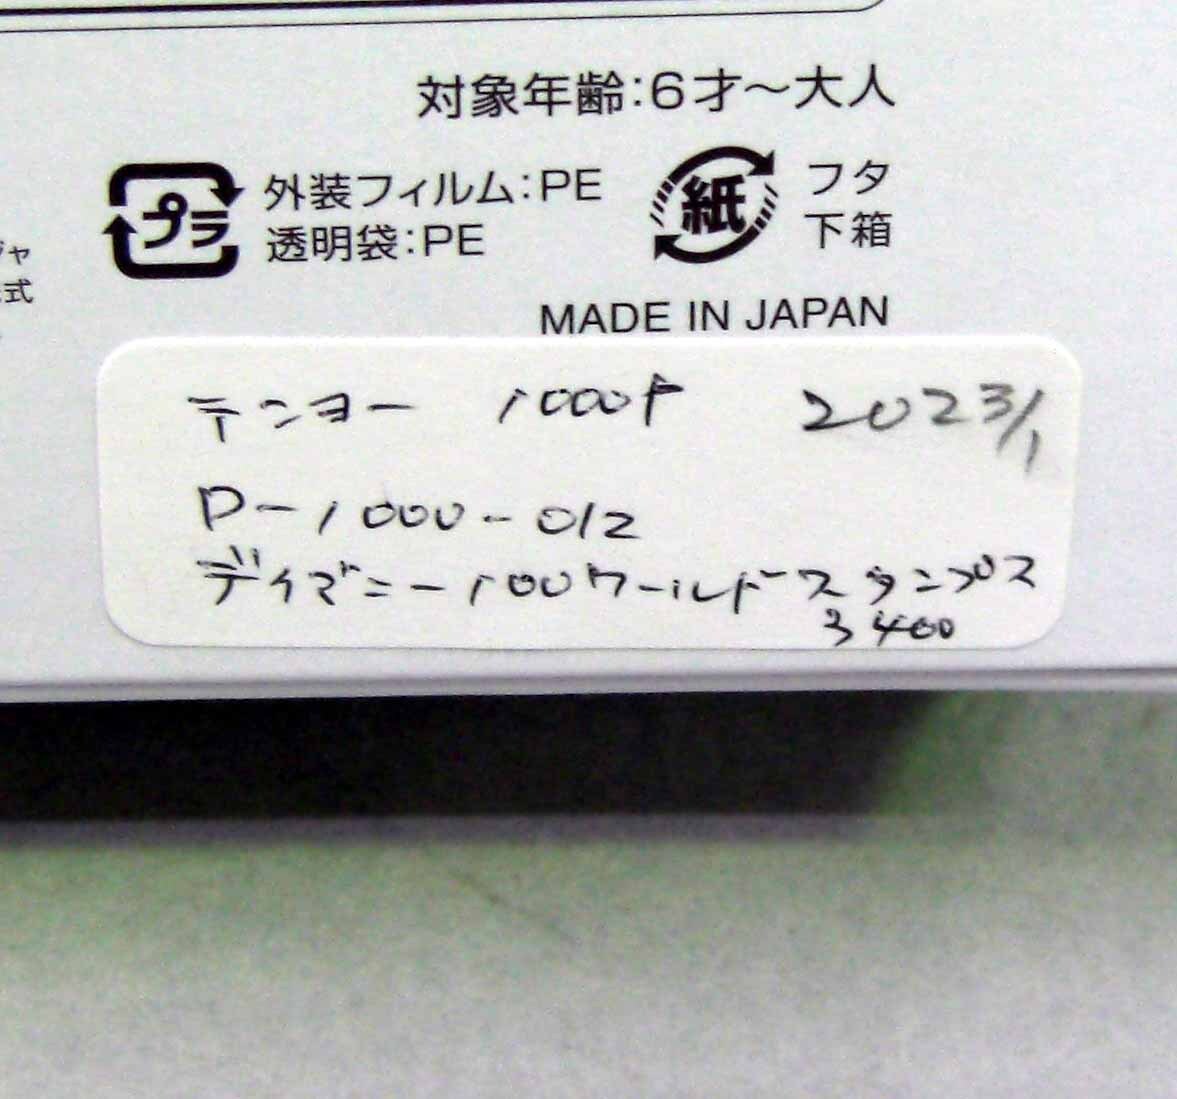 対象年齢:6才〜大人
プラ 外装フィルム:PE
透明袋:PE
紙 フタ
下箱
ジャ
式
MADE IN JAPAN
テンヨー 1000P 2023/1
D-1000-012
ディズニー100ワールドスタンプス
3400